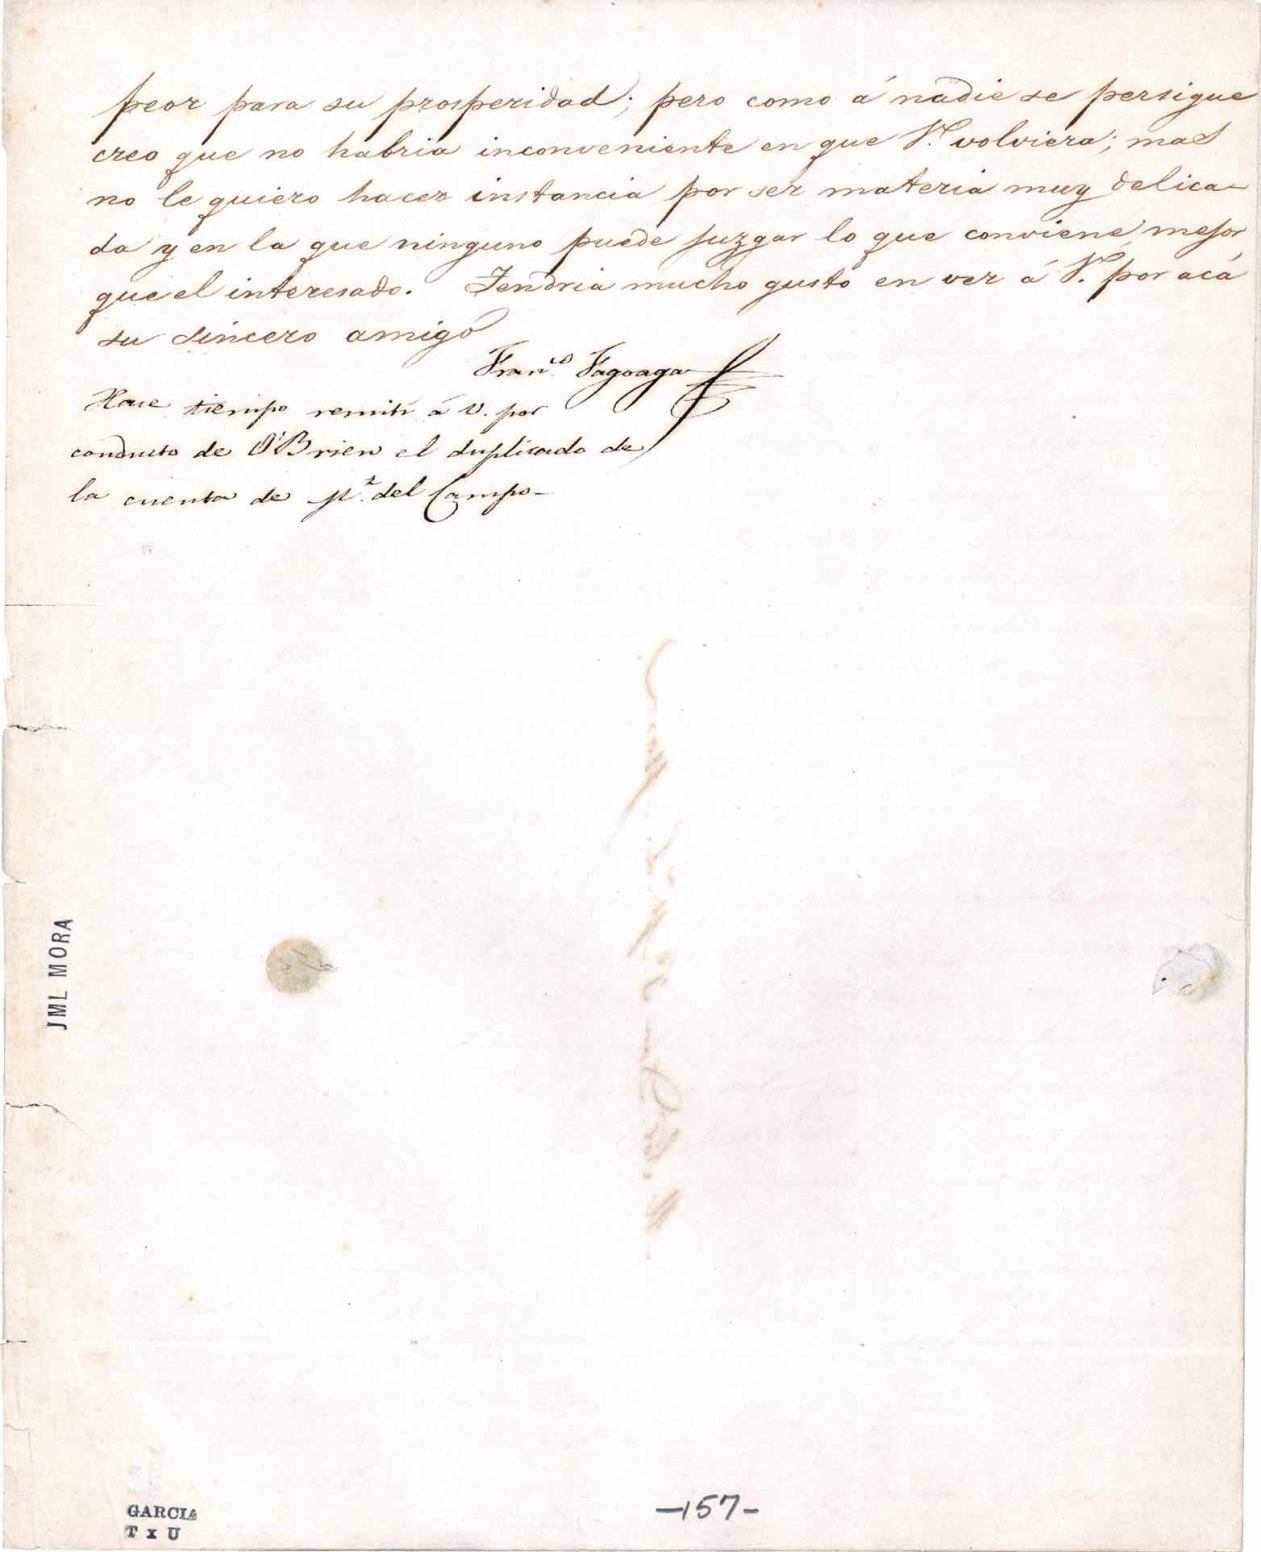 peor para su prosperidad; pero como á nadie se persigue
creo que no habria inconveniente en que V. volviera; mas
no le quiero hacer instancia por ser materia muy delica-
da y en la que ninguno puede juzgar lo que conviene mejor
que el interesado. Tendria mucho gusto en ver á V. por acá
su sincero amigo
Fran.co Fagoaga
Hace tiempo remití á V. por
conducto de O'Brien el duplicado de
la cuenta de M.z del Campo-
JML MORA
GARCIA
T x U
-157-